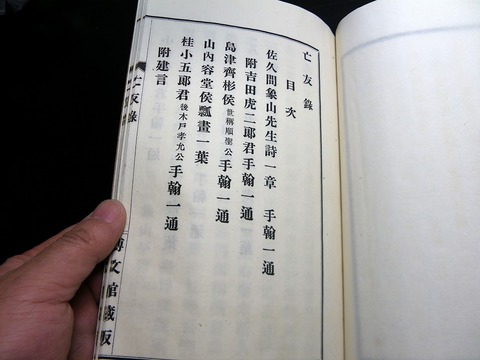 亡友錄
目次
佐久間象山先生詩一章 手翰一通
附吉田虎二郎君手翰一通
島津齊彬侯世稱順聖公手翰一通
山內容堂侯瓢畫一葉
桂小五郎君後木戶孝允公手翰一通
附建言
亡友錄
博文館藏版